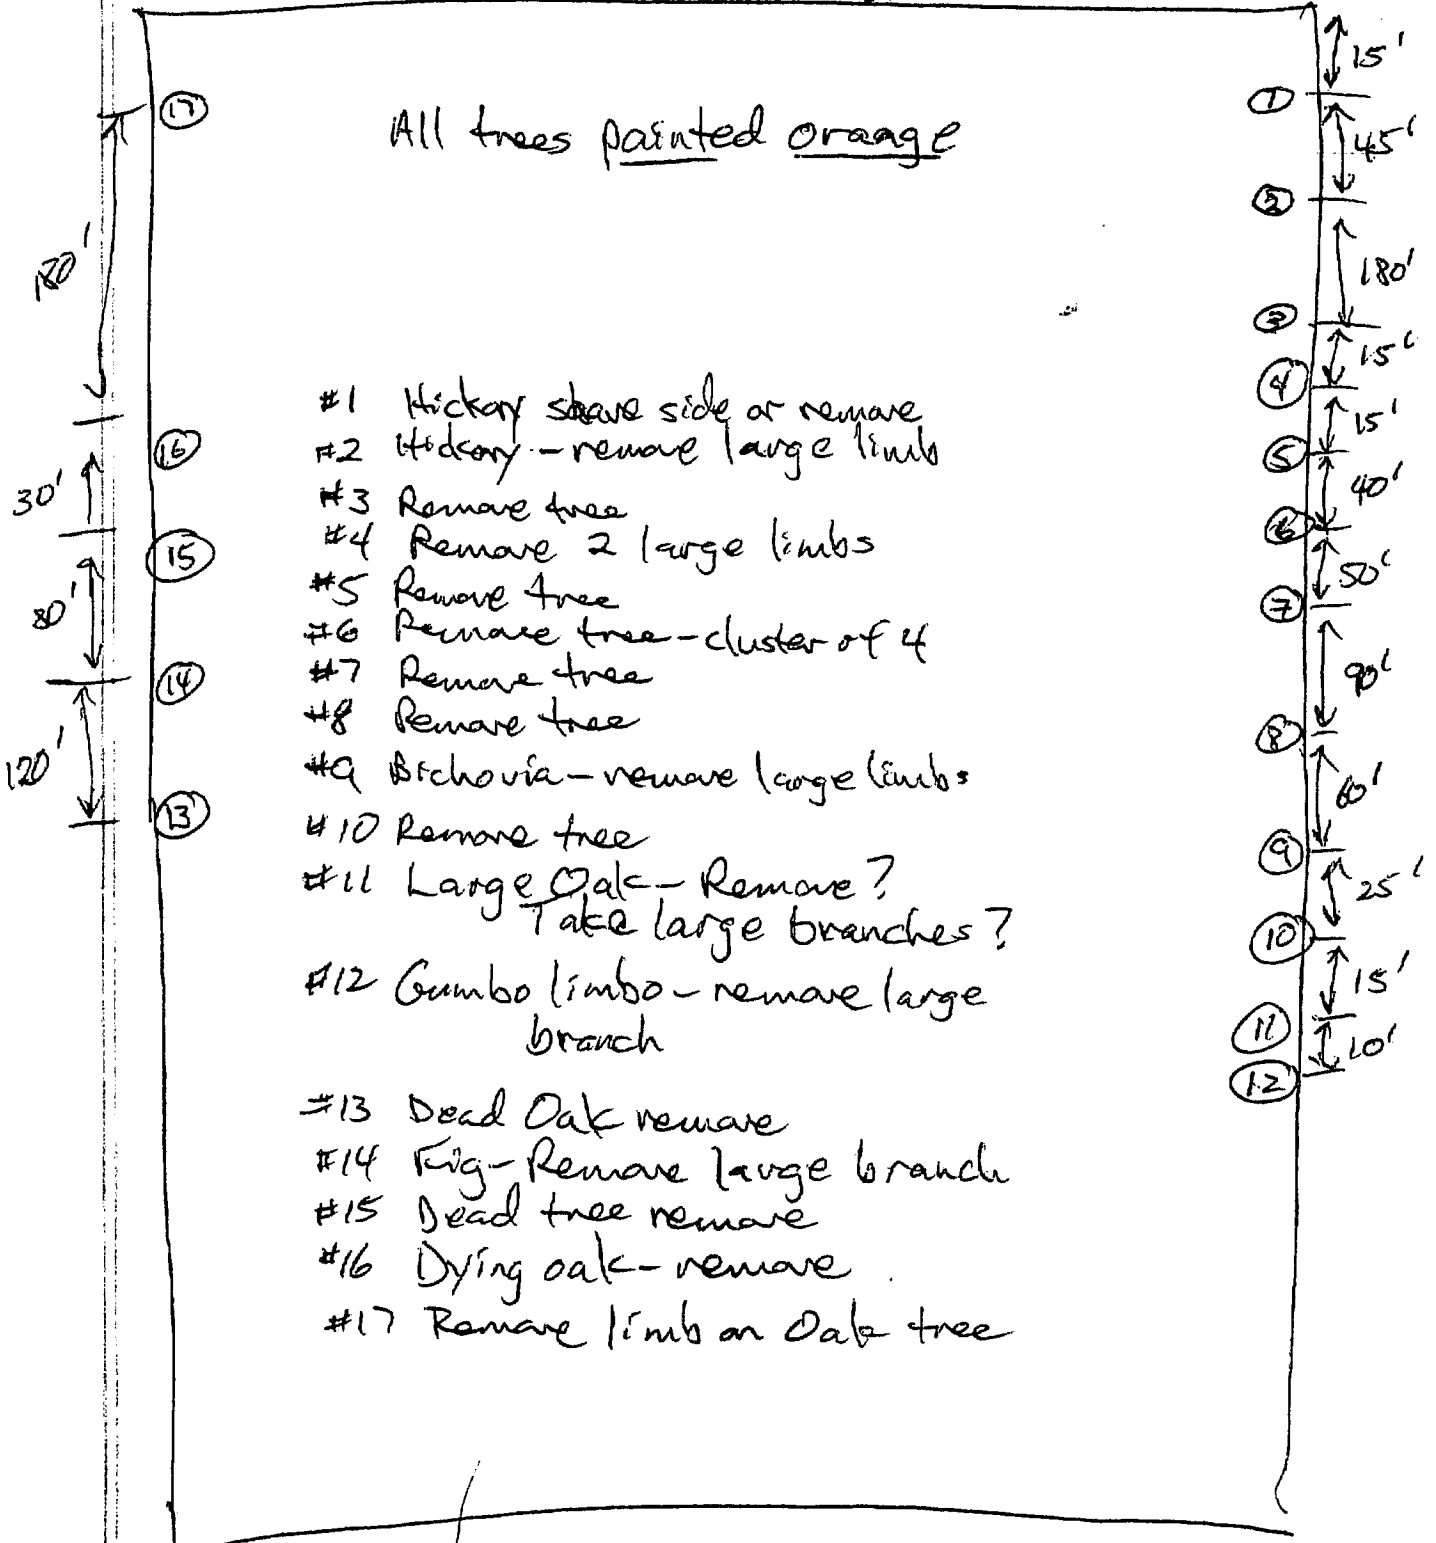 All trees painted orange
#1 Hickory shave side or remove
#2 Hickory - remove large limb
#3 Remove tree
#4 Remove 2 large limbs
#5 Remove tree
#6 Remove tree - cluster of 4
#7 Remove tree
#8 Remove tree
#9 Bichovia - remove large limbs
#10 Remove tree
#11 Large Oak - Remove?
Take large branches?
#12 Gumbo limbo - remove large
branch
#13 Dead Oak remove
#14 Fig - Remove large branch
#15 Dead tree remove
#16 Dying oak - remove
#17 Remove limb on Oak tree
17
16
30'
15
80'
14
120'
13
15'
1
45'
2
180'
3
15'
4
15'
5
40'
6
50'
7
90'
8
60'
9
25'
10
15'
11
10'
12